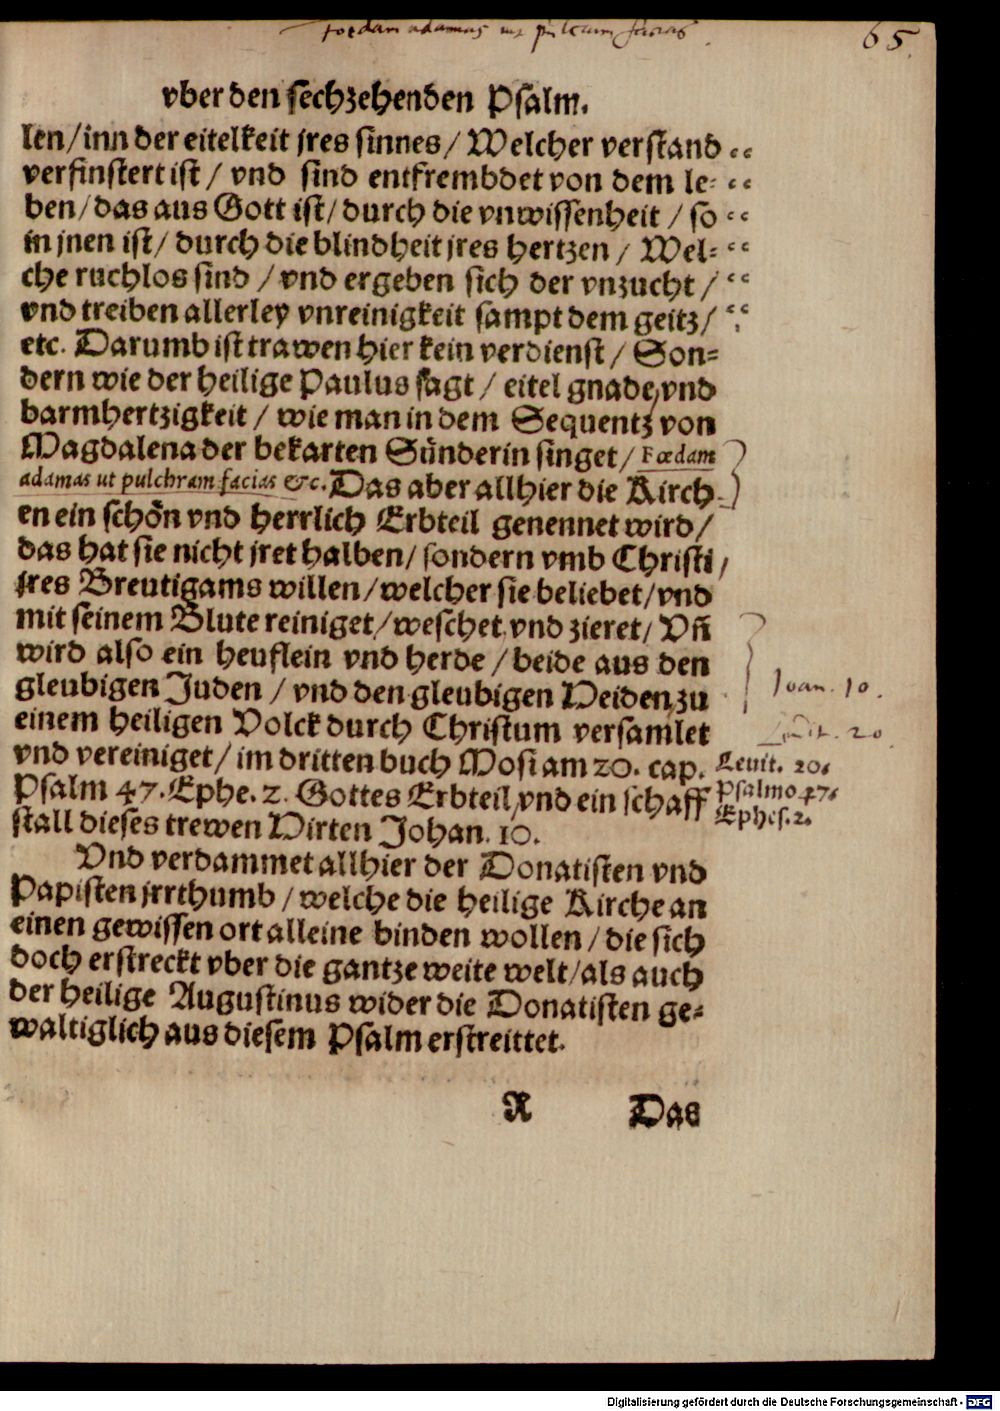 foedam adamas ut pulcram facias
65.
vber den sechzehenden Psalm.
len/inn der eitelkeit jres sinnes/ Welcher verstand “
verfinstert ist/ vnd sind entfrembdet von dem le- “
ben/das aus Gott ist/durch die vnwissenheit/ so “
in jnen ist/ durch die blindheit jres hertzen/ Wel- “
che ruchlos sind/ vnd ergeben sich der vnzucht/ “
vnd treiben allerley vnreinigkeit sampt dem geitz/ “
etc. Darumb ist trawen hier kein verdienst/ Son-
dern wie der heilige Paulus sagt/ eitel gnade vnd
barmhertzigkeit/ wie man in dem Sequentz von
Magdalena der bekarten Sünderin singet/ Fœdam
adamas ut pulchram facias &c. Das aber allhier die Kirch-
en ein schön vnd herrlich Erbteil genennet wird/
das hat sie nicht jret halben/ sondern vmb Christi/
jres Breutigams willen/welcher sie beliebet/vnd
mit seinem Blute reiniget/weschet vnd zieret/ Vñ
wird also ein heuflein vnd herde/ beide aus den
gleubigen Juden/ vnd den gleubigen Heiden zu
Ioan. 10.
einem heiligen Volck durch Christum versamlet
20
vnd vereiniget/ im dritten buch Mosi am 20. cap.
Levit. 20.
Psalm 47. Ephe. 2. Gottes Erbteil vnd ein schaff
Psalmo 47.
Ephes. 2.
stall dieses trewen Hirten Johan. 10.
Vnd verdammet allhier der Donatisten vnd
Papisten jrrthumb/ welche die heilige Kirche an
einen gewissen ort alleine binden wollen/ die sich
doch erstreckt vber die gantze weite welt/als auch
der heilige Augustinus wider die Donatisten ge-
waltiglich aus diesem Psalm erstreittet.
R Das
Digitalisierung gefördert durch die Deutsche Forschungsgemeinschaft - DFG